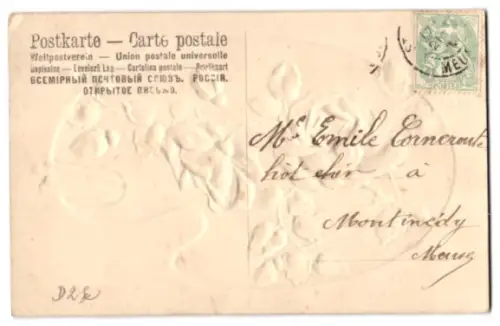 Postkarte — Carte postale
Weltpostverein — Union postale universelle
Dopisnice — Levelező Lap — Cartolina postale — Briefkaart
ВСЕМІРНЫЙ ПОЧТОВЫЙ СОЮЗЪ. РОССІЯ.
ОТКРЫТОЕ ПИСЬМО.
MEU
Mr Emile
à
Montmédy
Meuse